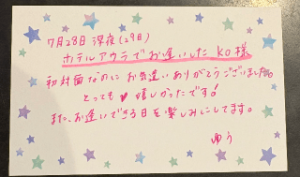 7月28日 深夜(29日)
ホテルアウラでお逢いした KO様
初対面なのに お気遣いありがとうございました
とっても♥嬉しかったです♪
また、お逢いできる日を楽しみにしてます。
ゆう